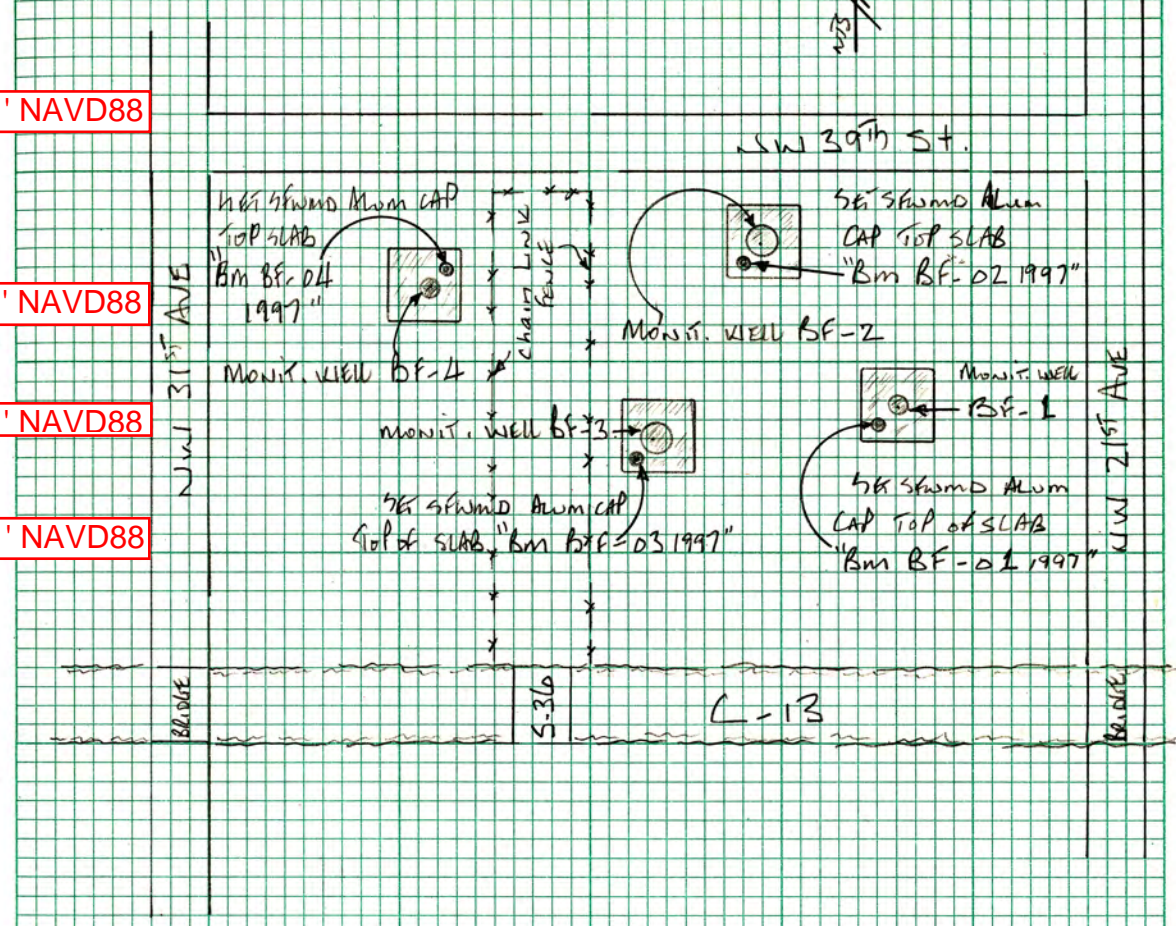 ' NAVD88
' NAVD88
' NAVD88
' NAVD88
NW 39th St.
NW 31ST AVE
SET SFWMD Alum CAP
TOP SLAB
"Bm BF-04
1997"
MONIT. WELL BF-4
chain LINK
FENCE
SET SFWMD ALum
CAP TOP SLAB
"Bm BF-02 1997"
MONIT. WELL BF-2
MONIT. WELL
BF-1
MONIT. WELL BF-3
SET SFWMD ALUM CAP
Top of SLAB "Bm BF-03 1997"
SET SFWMD ALum
CAP TOP of SLAB
"Bm BF-01 1997"
NW 21ST AVE
BRIDGE
S-36
C-13
BRIDGE